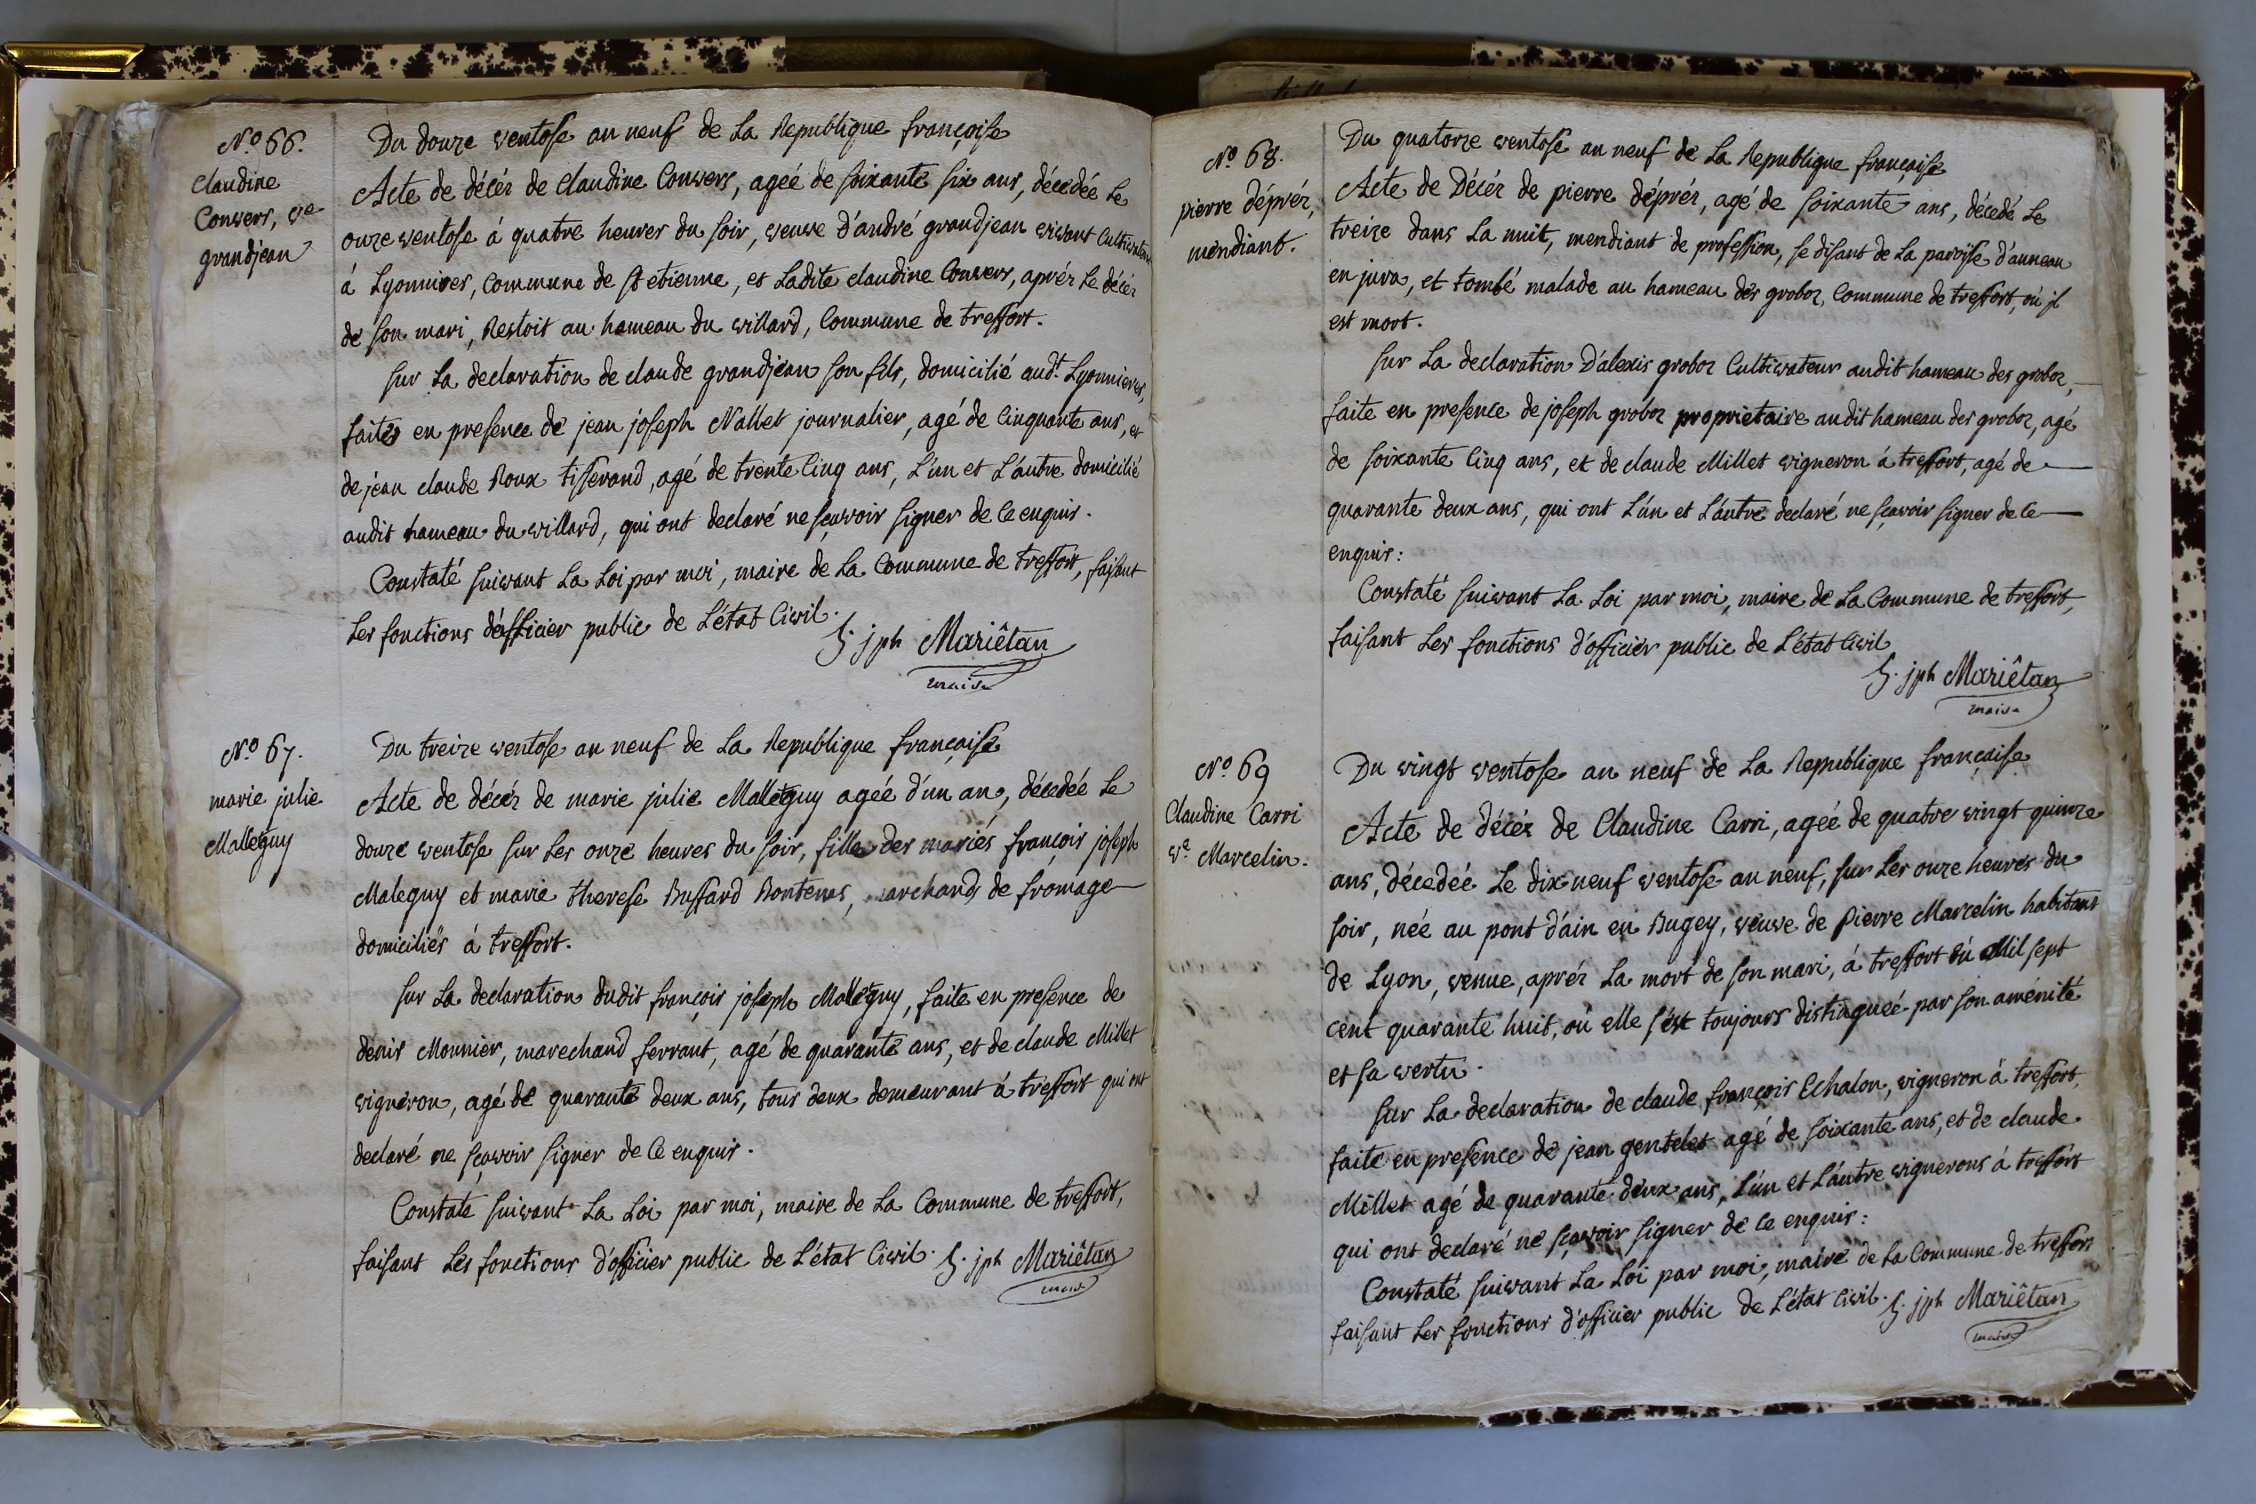 N.º 66.
Claudine
Convers, ve
grandjean
Du douze ventose an neuf de La Republique françoise
Acte de décés de Claudine Convers, ageé de soixante six ans, décedée Le
onze ventose á quatre heures du soir, veuve d'andré grandjean vivant Cultivateur
á Lyonnieres, Commune de st etienne, et Ladite claudine Convers, aprés Le décés
de son mari, Restoit au hameau du villard, Commune de treffort.
sur La declaration de claude grandjean son fils, domicilié aud.t Lyonnieres,
faites en presence de jean joseph Nallet journalier, agé de Cinquante ans, et
de jean claude Roux tisserand, agé de trente Cinq ans, L'un et L'autre domicilié
audit hameau du villard, qui ont declaré ne sçavoir signer de Ce enquis.
Constaté suivant La Loi par moi, maire de La Commune de treffort, faisant
Les fonctions d'officier public de L'état Civil.
jph Mariêtan
maire
N.º 67.
marie julie
Malleguy
Du treize ventose an neuf de La Republique françaisse
Acte de décés de marie julie Malleguy ageé d'un an, décedée Le
douze ventose sur Les onze heures du soir, fille des mariés françois joseph
Maleguy et marie therese Buffard Bontems, marchands de fromage
domiciliés á treffort.
sur La declaration dudit françois joseph Malleguy, faite en presence de
denis Monnier, marechand ferrant, agé de quarante ans, et de claude Millet
vigneron, agé de quarante deux ans, tous deux demeurant á treffort qui ont
declaré ne sçavoir signer de Ce enquis.
Constate suivant La Loi par moi, maire de La Commune de treffort,
faisant Les fonctions d'officier public de L'état Civil. jph Mariêtan
maire
Nº 68.
pierre déprés,
mendiant.
Du quatorze ventose an neuf de La Republique francaise
Acte de Décés de pierre déprés, agé de soixante ans, décedé Le
treize dans La nuit, mendiant de profession, se disant de La paroisse d'auneau
en jura, et tombé malade au hameau des groboz, Commune de treffort, où jl
est mort.
sur La declaration D'alexis groboz Cultivateur audit hameau des groboz,
faite en presence de joseph groboz proprietaire audit hameau des groboz, agé
de soixante Cinq ans, et de claude Millet vigneron á treffort, agé de
quarante deux ans, qui ont L'ún et L'áutre declaré ne sçavoir signer de Ce
enquis:
Constaté suivant La Loi par moi, maire de La Commune de treffort,
faisant Les fonctions d'officier public de L'état Civil
jph Mariêtan
maire
Nº 69
Claudine Carri
ve Marcelin.
Du vingt ventose an neuf de La Republique française
Acte de décés de Claudine Carri, ageé de quatre vingt quinze
ans, décedeé Le dix neuf ventose an neuf, sur Les onze heures du
soir, née au pont d'ain en Bugey, veuve de pierre Marcelin habitant
de Lyon, venue, aprés La mort de son mari, á treffort èn Mil sept
cent quarante huit, où elle s'ést toujours distingueé par son aménité
et sa vertu.
sur La declaration de claude françois Echalon, vigneron á treffort,
faite en presence de jean gentelet agé de soixante ans, et de claude
Millet agé de quarante deux ans, L'ún et L'áutre vignerons á treffort
qui ont declaré ne sçavoir signer de Ce enquis:
Constaté suivant La Loi par moi, maire de La Commune de treffort
faisant Les fonctions d'officier public de L'état Civil. jph Mariêtan
maire